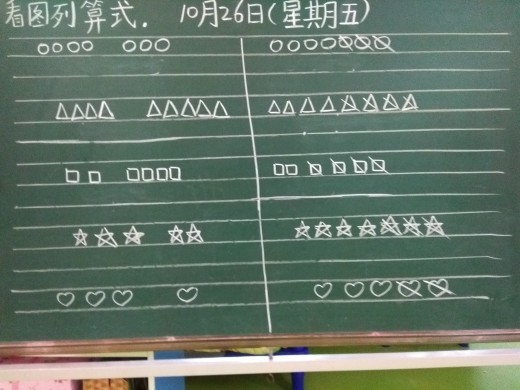 看图列算式. 10月26日(星期五)